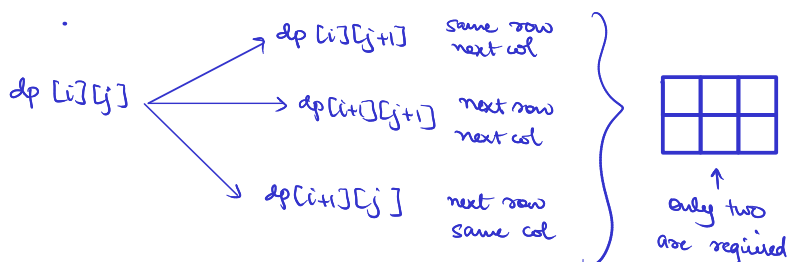 dp [i][j]
dp [i][j+1]
same row
next col
dp[i+1][j+1]
next row
next col
dp[i+1][j]
next row
same col
only two
are required